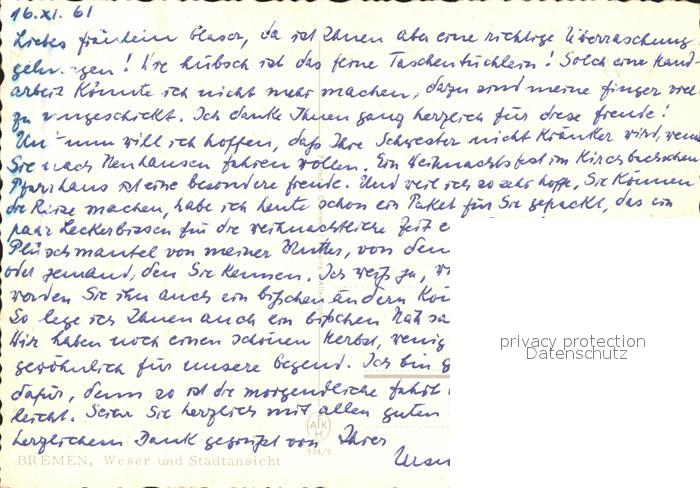 16.XI.61
Liebes Fräulein Glaser, da ist Ihnen aber eine richtige Überraschung
gelungen! Wie hübsch ist das feine Taschentüchlein! Solch eine Hand-
arbeit könnte ich nicht mehr machen, dazu sind meine Finger viel
zu ungeschickt. Ich danke Ihnen ganz herzlich für diese Freude!
Und nun will ich hoffen, daß Ihre Schwester nicht kränker wird, wenn
Sie nach Neuhausen fahren wollen. Ein Weihnachtsfest im
Pfarrhaus ist eine besondere Freude. Und weil ich so sehr hoffe, Sie können
die Reise machen, habe ich heute schon ein Paket für Sie gepackt, das ein
paar Leckerbissen für die weihnachtliche Zeit
Plüschmantel von meiner Mutter, von dem
oder jemand, den Sie kennen. Ich weiß ja,
werden Sie ihn auch ein bißchen ändern
So lege ich Ihnen auch ein bißchen
Wir haben noch einen schönen Herbst, wenig
gewöhnlich für unsere Gegend. Ich bin
dafür, denn so ist die morgendliche Fahrt
leicht. Seien Sie herzlich mit allen guten
herzlichem Dank gegrüßt von Ihrer
AKH
934/5
BREMEN, Weser und Stadtansicht
privacy protection
Datenschutz